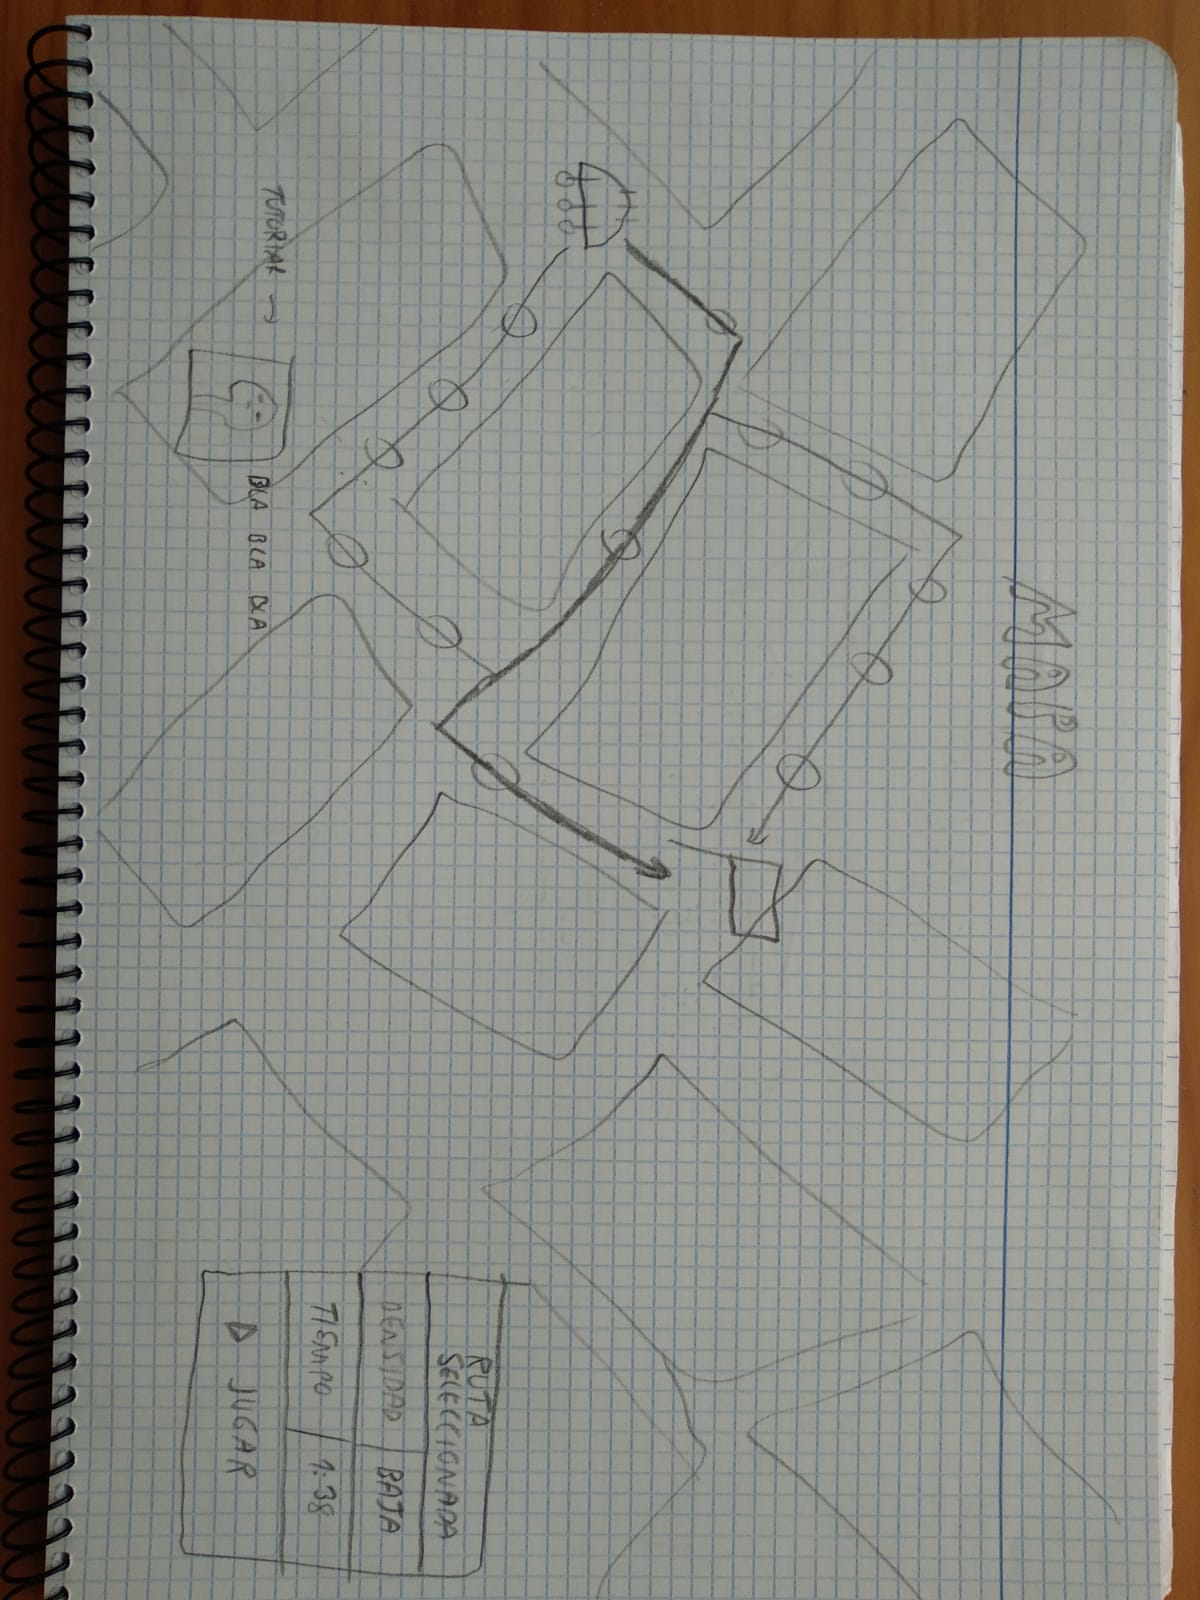 MAPA
TUTORIAL →
BLA BLA BLA
RUTA
SELECCIONADA
DENSIDAD BAJA
TIEMPO 1:38
▷ JUGAR